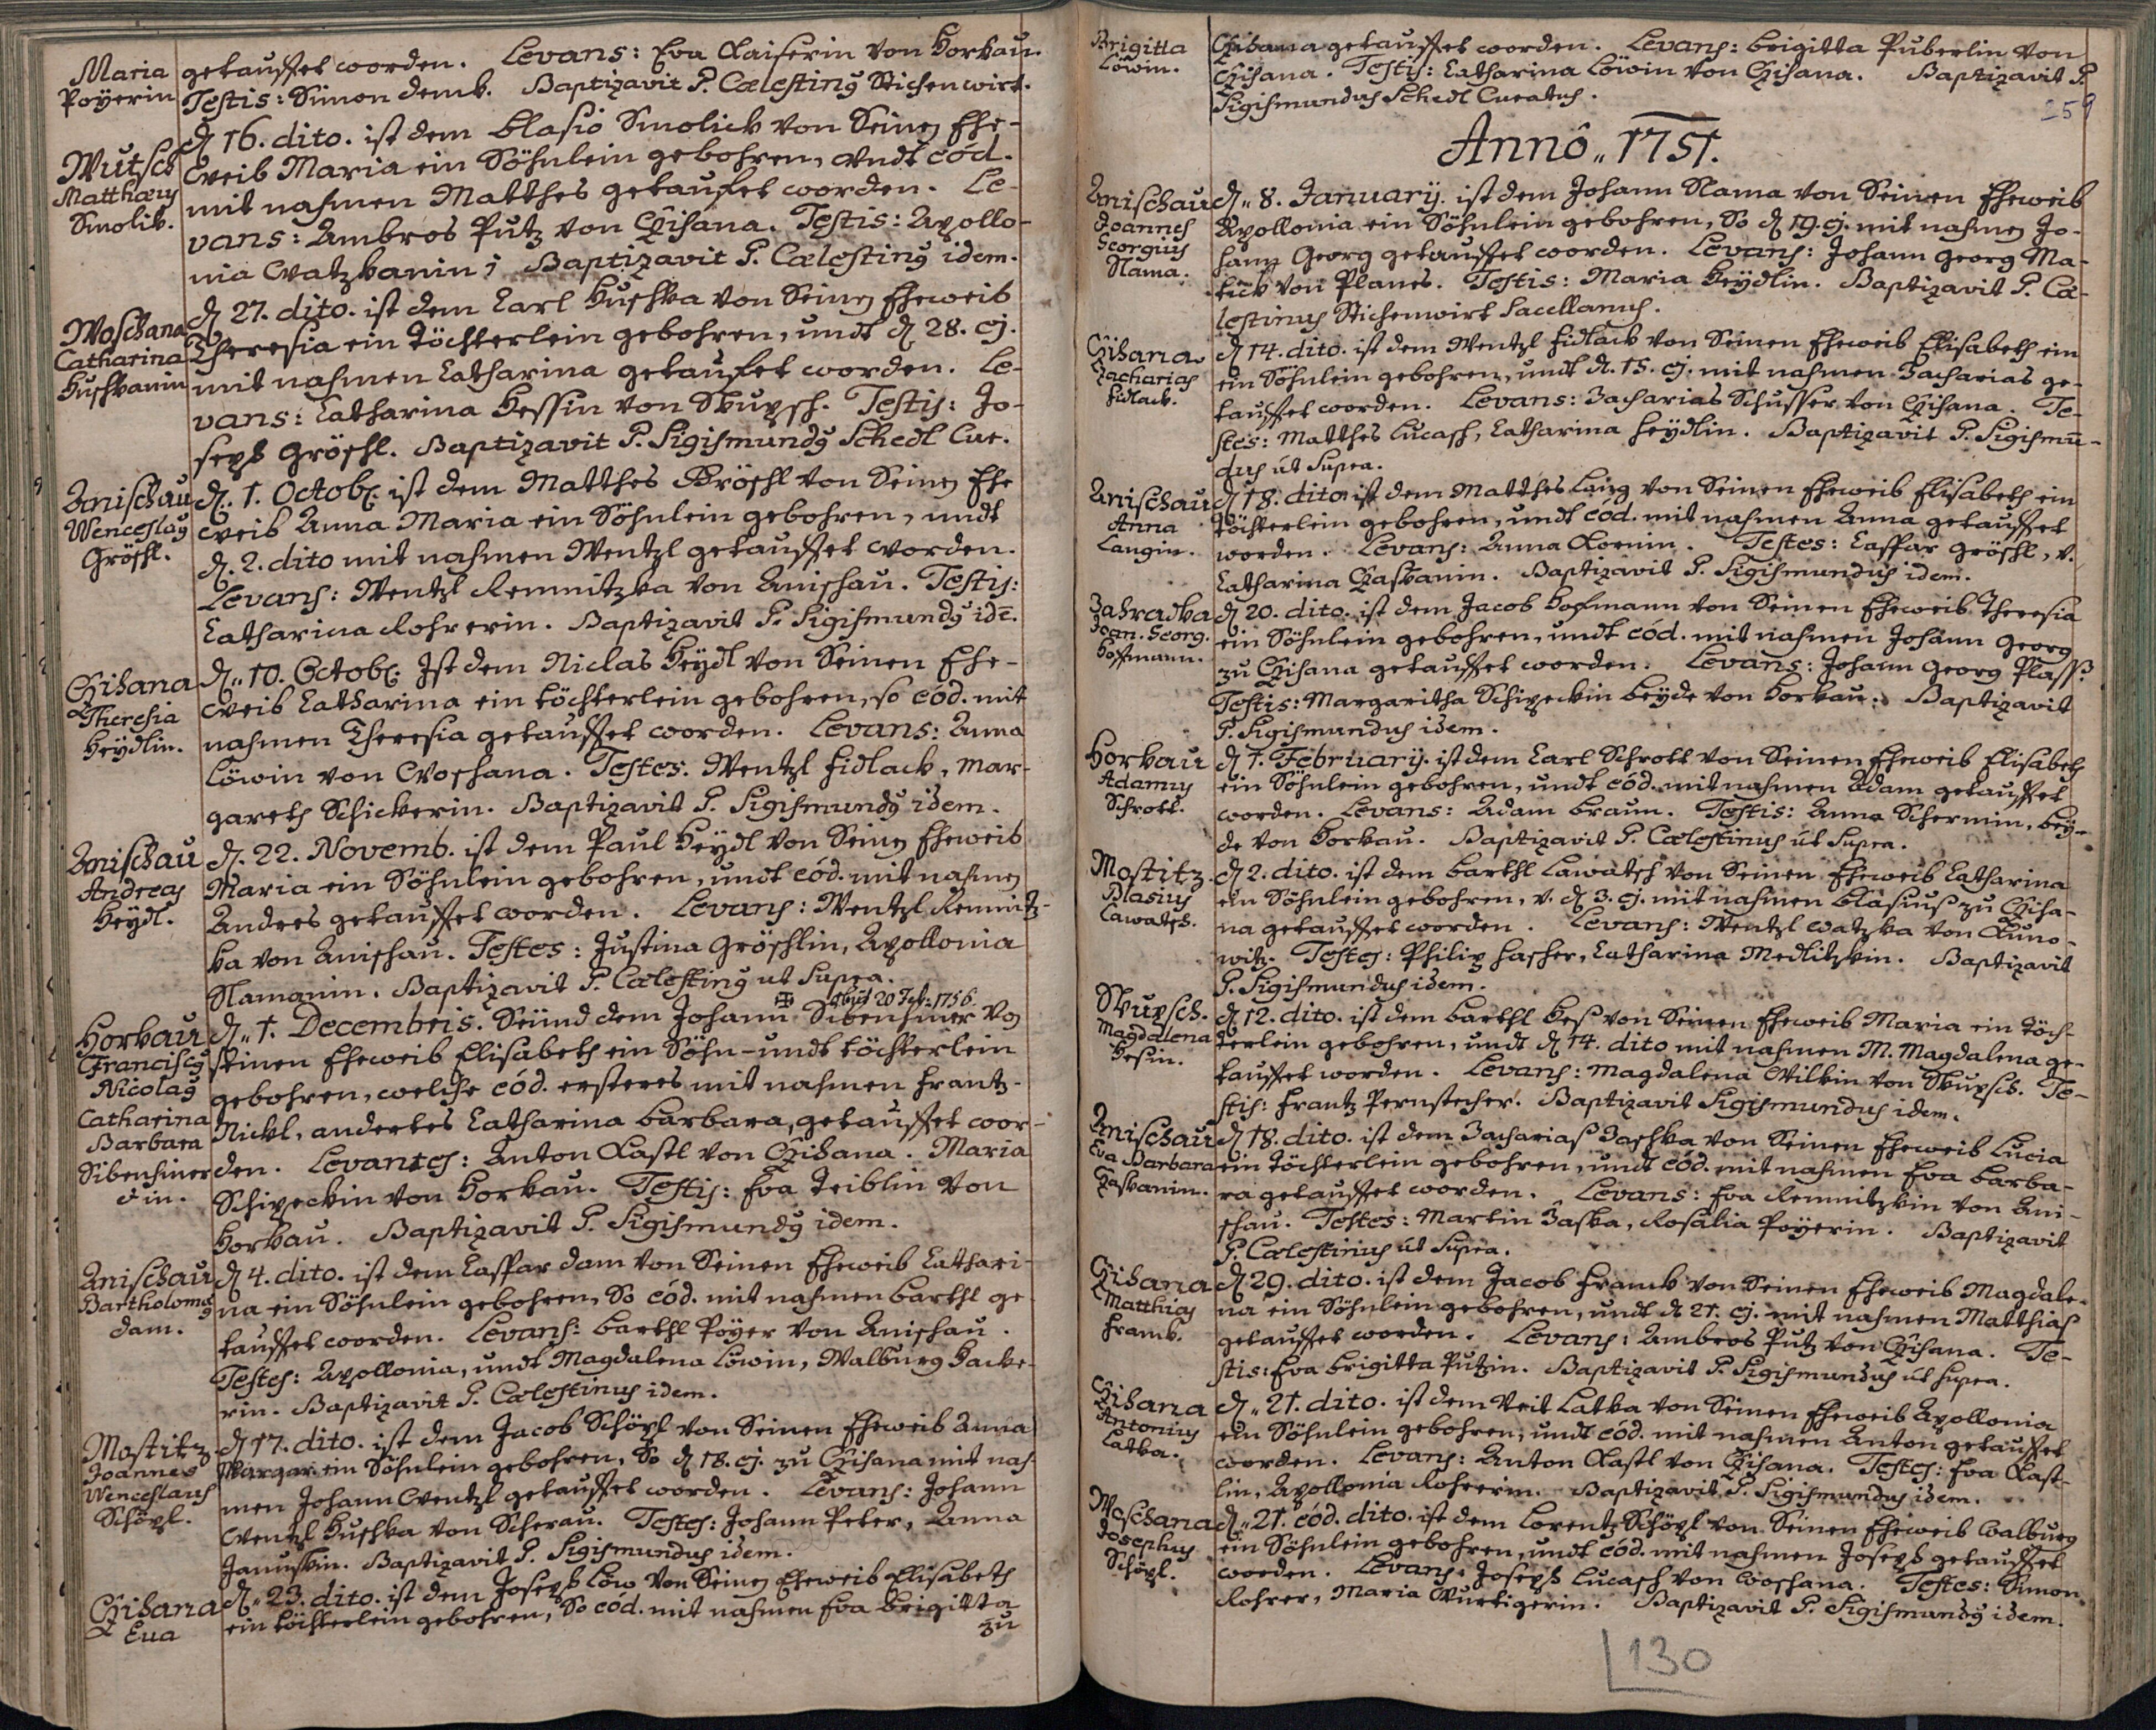 Maria
Poÿerin
getauffet worden. Levans: Eva Kaiserin von Horkau.
Testis: Simon Demb. Baptizavit P. Cælestinus Stichenwirt.
Wutsch
Matthæus
Smolik.
d. 16. dito. ist dem Blasio Smolick von Seinen Ehe-
weib Maria ein Söhnlein gebohren, undt eód.
mit nahmen Matthes getauffet worden. Le-
vans: Ambros Putz von Chihana. Testis: Apollo-
nia Watzkanin; Baptizavit P. Cælestinus idem.
Woschana
Catharina
Huschkanin
d. 27. dito. ist dem Carl Huschka von Seinen Eheweib
Theresia ein Töchterlein gebohren, undt d. 28. ej.
mit nahmen Catharina getauffet worden. Le-
vans: Catharina Hessin von Skupsch. Testis: Jo-
seph Gröschl. Baptizavit P. Sigismundus Schedl Cur.
Anischau
Wenceslaus
Gröschl.
d. 1. Octob. ist dem Matthes Gröschl von Seinen Ehe
weib Anna Maria ein Söhnlein gebohren, undt
d. 2. dito mit nahmen Wentzl getauffet worden.
Levans: Wentzl Remnitzka von Anischau. Testis:
Catharina Rohrerin. Baptizavit P. Sigismundus idē.
Chihana
Theresia
Heÿdlin.
d. 10. Octob. Ist dem Niclas Heÿdl von Seinen Ehe-
weib Catharina ein töchterlein gebohren, so eód. mit
nahmen Theresia getauffet worden. Levans: Anna
Löwin von Woschana. Testes: Wentzl Fidlack, Mar-
gareth Schickerin. Baptizavit P. Sigismundus idem.
Anischau
Andreas
Heÿdl.
d. 22. Novemb. ist dem Paul Heÿdl von Seinen Eheweib
Maria ein Söhnlein gebohren, undt eód. mit nahmen
Andres getauffet worden. Levans: Wentzl Remnitz-
ka von Anischau. Testes: Justina Gröschlin, Apollonia
Slamanin. Baptizavit P. Cælestinus ut Supra.
✠ obiit 20 Feb: 1756.
Horkau
Franciscus
Nicolaus
Catharina
Barbara
Sibenhiner
din.
d. 1. Decembris. Seünd dem Johann Sibenhiner von
seinen Eheweib Elisabeth ein Söhn- undt töchterlein
gebohren, welche eód. ersteres mit nahmen Frantz-
Nickl, andertes Catharina Barbara, getauffet wor-
den. Levantes: Anton Kastl von Chihana. Maria
Schipeckin von Horkau. Testis: Eva Teiblin von
Horkau. Baptizavit P. Sigismundus idem.
Anischau
Bartholomæus
Dam.
d. 4. dito. ist dem Caspar Dam von Seinen Eheweib Cathari-
na ein Söhnlein gebohren, So eód. mit nahmen Barthl ge-
tauffet worden. Levans: Barthl Poÿer von Anischau.
Testes: Apollonia, undt Magdalena Löwin, Walburg Hacke-
rin. Baptizavit P. Cælestinus idem.
Mostitz
Joannes
Wenceslaus
Schöpl.
d. 17. dito. ist dem Jacob Schöpl von Seinen Eheweib Anna
Margar: ein Söhnlein gebohren, So d. 18. ej. zu Chihana mit nah-
men Johann Wentzl getauffet worden. Levans: Johann
Wentzl Huschka von Scherau. Testes: Johann Peter, Anna
Januskin. Baptizavit P. Sigismundus idem.
Chihana
Eva
d. 23. dito. ist dem Joseph Löw von Seinen Eheweib Elisabeth
ein töchterlein gebohren, So eód. mit nahmen Eva Brigitta
zu
Brigitta
Löwin.
Chihana getauffet worden. Levans: Brigitta Puberlin von
Chihana. Testis: Catharina Löwin von Chihana. Baptizavit P.
Sigismundus Schedl Curatus.
259
Annô 1751.
Anischau
Joannes
Georgius
Slama.
d. 8. Januarÿ. ist dem Johann Slama von Seinen Eheweib
Apollonia ein Söhnlein gebohren, So d. 19. ej. mit nahmen Jo-
hann Georg getauffet worden. Levans: Johann Georg Ma-
tick von Planes. Testis: Maria Heÿdlin. Baptizavit P. Cæ-
lestinus Stichenwirt Sacellanus.
Chihana
Zacharias
Fidlack.
d. 14. dito. ist dem Wentzl Fidlack von Seinen Eheweib Elisabeth ein
ein Söhnlein gebohren, undt d. 15. ej. mit nahmen Zacharias ge-
tauffet worden. Levans: Zacharias Schusser von Chihana. Te-
stes: Matthes Lucasch, Catharina Heÿdlin. Baptizavit P. Sigismu-
dus út Supra.
Anischau
Anna
Langin.
d. 18. dito. ist dem Matthes Lang von Seinen Eheweib Elisabeth ein
töchterlein gebohren, undt eód. mit nahmen Anna getauffet
worden. Levans: Anna Kornin. Testes: Caspar Gröschl, v.
Catharina Chaskanin. Baptizavit P. Sigismundus idem.
Zahradka
Joan. Georg.
Hoffmann.
d. 20. dito. ist dem Jacob Hofmann von Seinen Eheweib Theresia
ein Söhnlein gebohren, undt eód. mit nahmen Johann Georg
zu Chihana getauffet worden. Levans: Johann Georg Plass.
Testis: Margaritha Schipeckin beÿde von Horkau. Baptizavit
P. Sigismundus idem.
Horkau
Adamus
Schrott.
d. 1. Februarÿ. ist dem Carl Schrott von Seinen Eheweib Elisabeth
ein Söhnlein gebohren, undt eód. mit nahmen Adam getauffet
worden. Levans: Adam Braun. Testis: Anna Schermin, beÿ-
de von Horkau. Baptizavit P. Cælestinus út Supra.
Mostitz.
Blasius
Lawatsch.
d. 2. dito. ist dem Barthl Lawatsch von Seinen Eheweib Catharina
ein Söhnlein gebohren, v. d. 3. ej. mit nahmen Blasius zu Chiha-
na getauffet worden. Levans: Wentzl Watzka von Kuno-
witz. Testes: Philip Hascher, Catharina Medlitzkin. Baptizavit
P. Sigismundus idem.
Skupsch.
Magdalena
Hessin.
d. 12. dito. ist dem Barthl Hess von Seinen Eheweib Maria ein Töch-
terlein gebohren, undt d. 14. dito mit nahmen M. Magdalena ge-
tauffet worden. Levans: Magdalena Wilkin von Skupsch. Te-
stis: Frantz Pernstecher. Baptizavit Sigismundus idem.
Anischau
Eva Barbara
Chaskanin.
d. 18. dito. ist dem Zacharias Zaschka von Seinen Eheweib Lucia
ein Töchterlein gebohren, undt eód. mit nahmen Eva Barba-
ra getauffet worden. Levans: Eva Remnitzkin von Ani-
schau. Testes: Martin Zaska, Rosalia Poÿerin. Baptizavit
P. Cælestinus út Supra.
Chihana
Matthias
Franck.
d. 29. dito. ist dem Jacob Franck von Seinen Eheweib Magdale-
na ein Söhnlein gebohren, undt d. 21. ej. mit nahmen Matthias
getauffet worden. Levans: Ambros Putz von Chihana. Te-
stis: Eva Brigitta Putzin. Baptizavit P. Sigismundus út supra.
Chihana
Antonius
Latka.
d. 21. dito. ist dem Veit Latka von Seinen Eheweib Apollonia
ein Söhnlein gebohren, undt eód. mit nahmen Anton getauffet
worden. Levans: Anton Kastl von Chihana. Testes: Eva Kast-
lin, Apollonia Rohrerin. Baptizavit P. Sigismundus idem.
Woschana
Josephus
Schöpl.
d. 21. eód. dito. ist dem Lorentz Schöpl von Seinen Eheweib Walburg
ein Söhnlein gebohren, undt eód. mit nahmen Joseph getauffet
worden. Levans: Joseph Lucasch von Woschana. Testes: Simon
Rohrer, Maria Wurtigerin. Baptizavit P. Sigismundus idem.
130